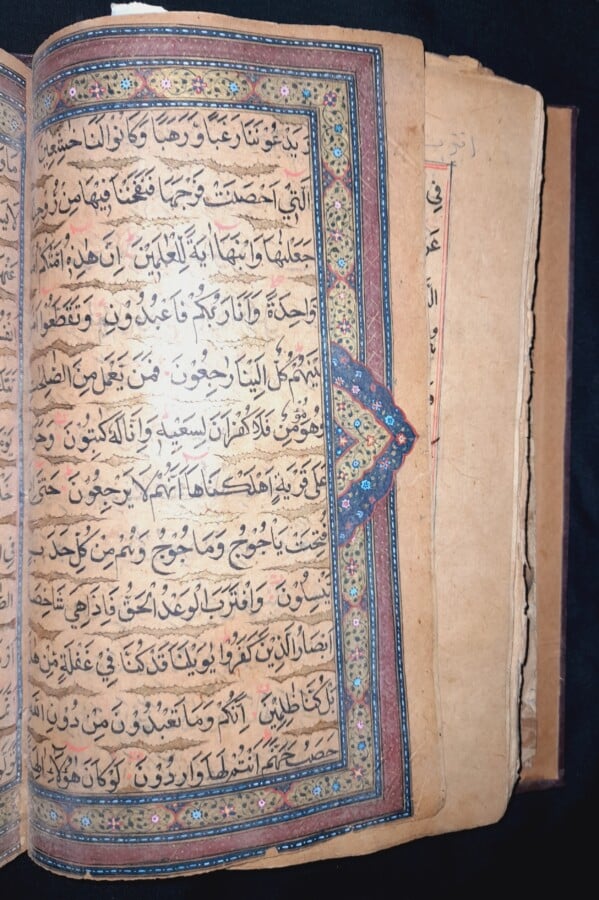 وَيَدْعُونَنَا رَغَبًا وَرَهَبًا وَكَانُوا لَنَا خٰشِعِينَ
الَّتِي اَحْصَنَتْ فَرْجَهَا فَنَفَخْنَا فِيهَا مِنْ
جَعَلْنٰهَا وَابْنَهَا اٰيَةً لِلْعٰلَمِينَ اِنَّ هٰذِهِ
وَاحِدَةً وَاَنَا رَبُّكُمْ فَاعْبُدُونِ وَتَقَطَّعُوا
بَيْنَهُمْ كُلٌّ اِلَيْنَا رٰجِعُونَ فَمَنْ يَعْمَلْ مِنَ
وَهُوَ مُؤْمِنٌ فَلَا كُفْرَانَ لِسَعْيِهٖ وَاِنَّا لَهُ كٰتِبُونَ
عَلٰى قَرْيَةٍ اَهْلَكْنَاهَا اَنَّهُمْ لَا يَرْجِعُونَ حَتّٰى
فُتِحَتْ يَاْجُوجُ وَمَاْجُوجُ وَهُمْ مِنْ كُلِّ حَدَبٍ
يَنْسِلُونَ وَاقْتَرَبَ الْوَعْدُ الْحَقُّ فَاِذَا هِيَ
اَبْصَارُ الَّذِينَ كَفَرُوا يٰوَيْلَنَا قَدْ كُنَّا فِي غَفْلَةٍ مِنْ
بَلْ كُنَّا ظٰلِمِينَ اِنَّكُمْ وَمَا تَعْبُدُونَ مِنْ دُونِ اللّٰهِ
حَصَبُ جَهَنَّمَ اَنْتُمْ لَهَا وَارِدُونَ لَوْ كَانَ هٰؤُلَاءِ